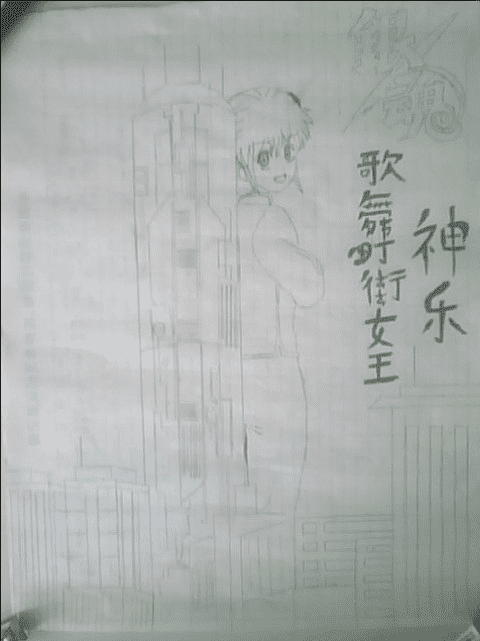 銀魂
神乐
歌舞町街女王